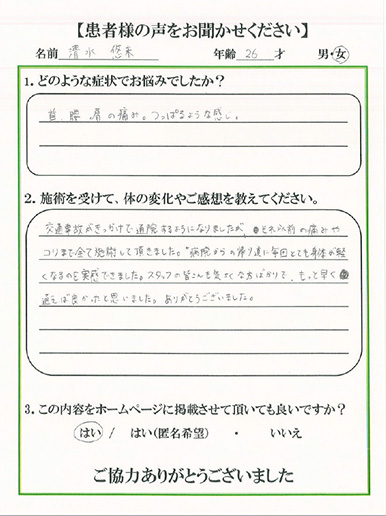 【患者様の声をお聞かせください】
名前 清水 悠来 年齢 26 才 男・女
1. どのような症状でお悩みでしたか？
首、腰、肩の痛み。つっぱるような感じ。
2. 施術を受けて、体の変化やご感想を教えてください。
交通事故がきっかけで通院するようになりましたが、それ以前の痛みや
コリまで全て施術して頂きました。病院からの帰り道に毎回とても身体が軽
くなるのを実感できました。スタッフの皆さんも気さくな方ばかりで、もっと早く
通えば良かったと思いました。ありがとうございました。
3. この内容をホームページに掲載させて頂いても良いですか？
はい / はい(匿名希望) ・ いいえ
ご協力ありがとうございました